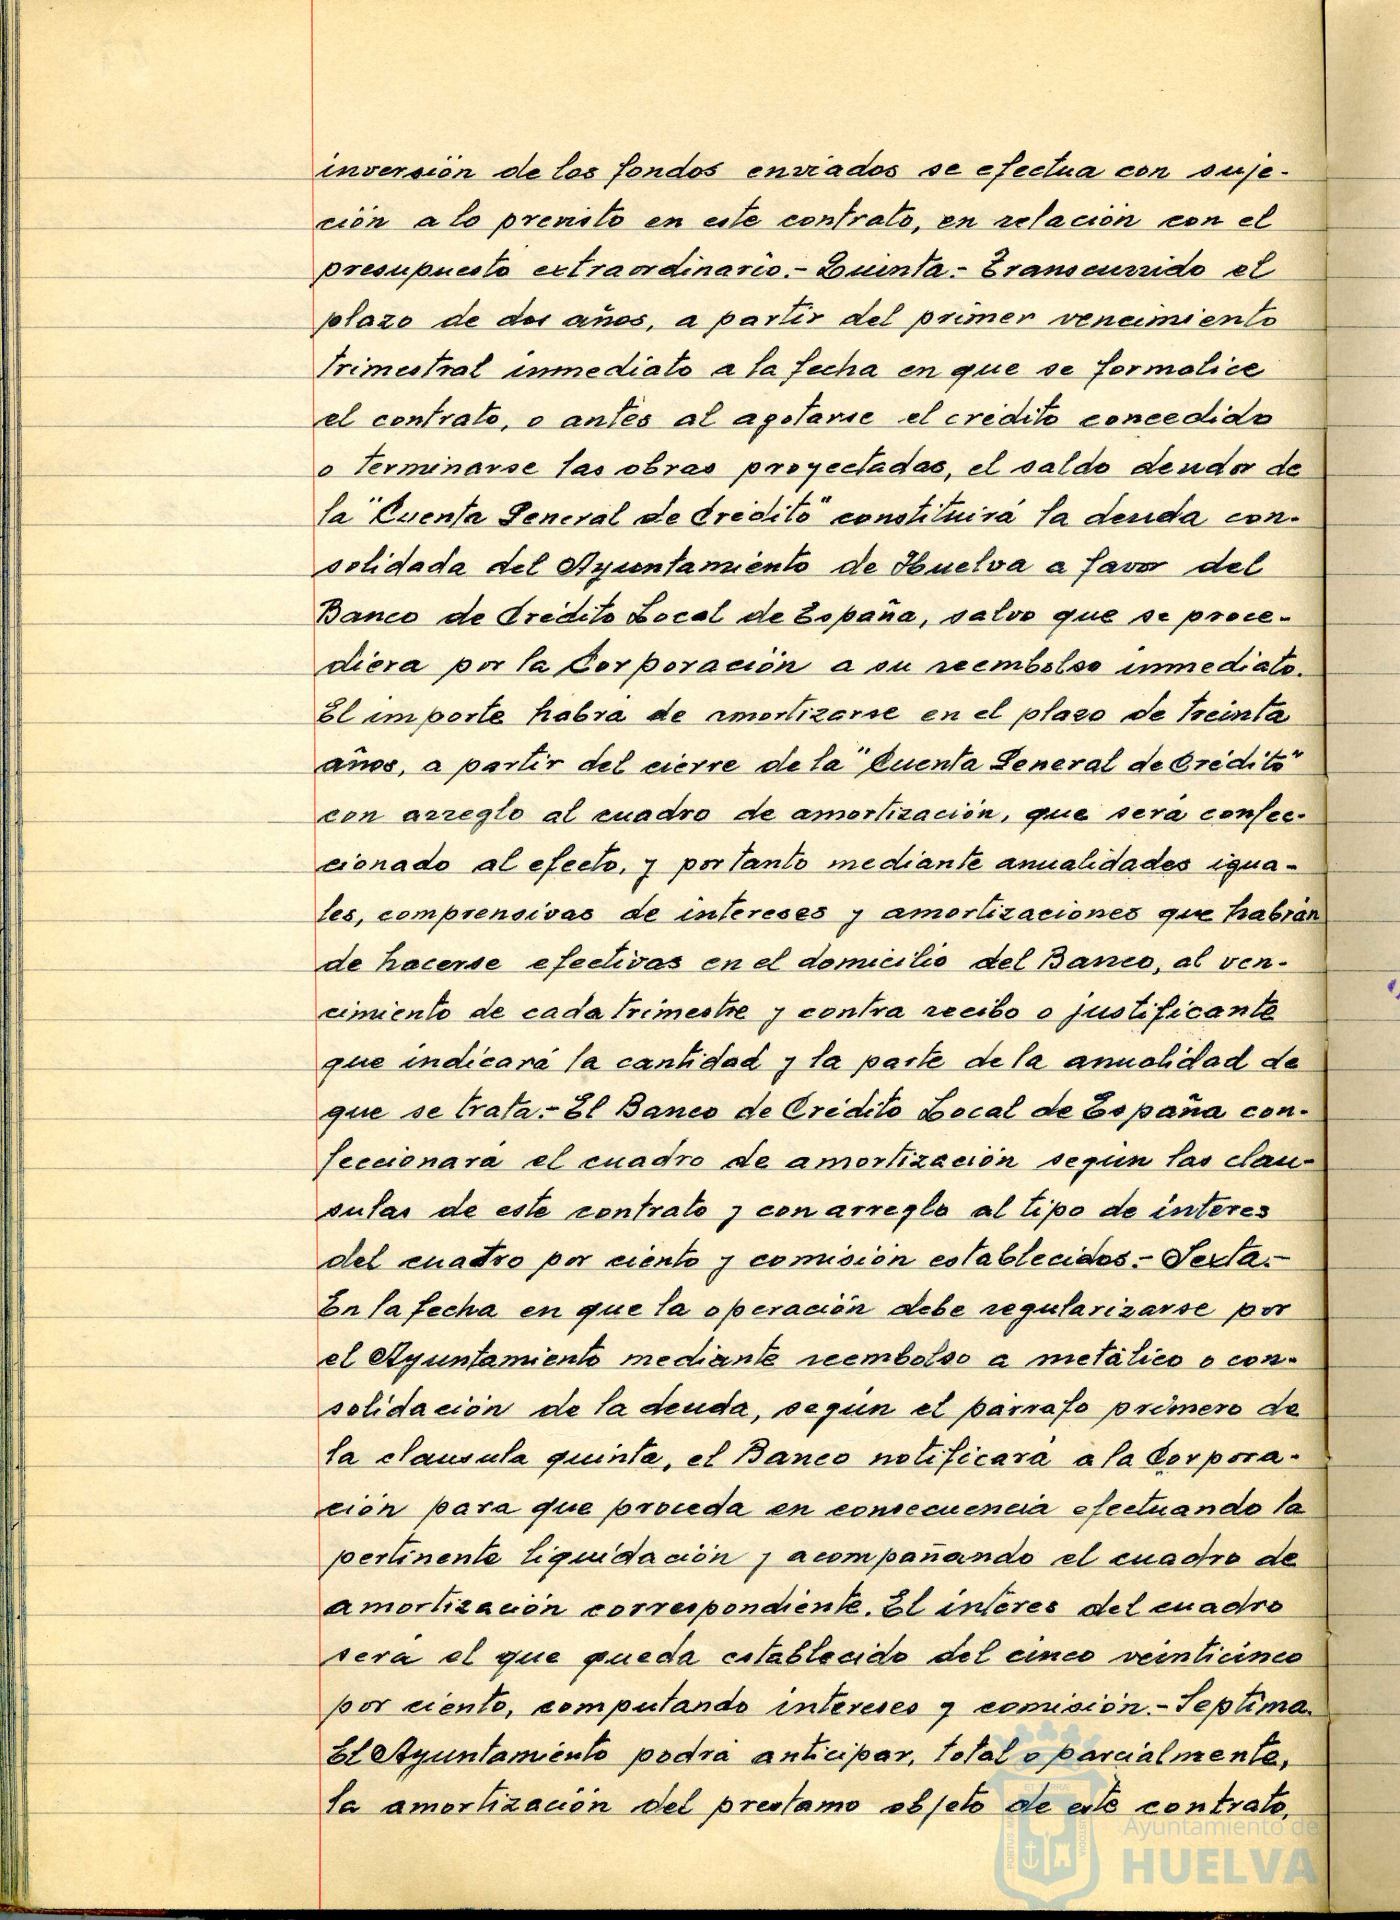 inversión de los fondos enviados se efectua con suje-
ción a lo previsto en este contrato, en relación con el
presupuesto extraordinario.- Quinta.- Transcurrido el
plazo de dos años, a partir del primer vencimiento
trimestral inmediato a la fecha en que se formalice
el contrato, o antes al agotarse el crédito concedido
o terminarse las obras proyectadas, el saldo deudor de
la "Cuenta General de Crédito" constituirá la deuda con-
solidada del Ayuntamiento de Huelva a favor del
Banco de Crédito Local de España, salvo que se proce-
diera por la Corporación a su reembolso inmediato.
El importe habrá de amortizarse en el plazo de treinta
años, a partir del cierre de la "Cuenta General de Crédito"
con arreglo al cuadro de amortización, que será confec-
cionado al efecto, y por tanto mediante anualidades igua-
les, comprensivas de intereses y amortizaciones que habrán
de hacerse efectivas en el domicilio del Banco, al ven-
cimiento de cada trimestre y contra recibo o justificante
que indicará la cantidad y la parte de la anualidad de
que se trata.- El Banco de Crédito Local de España con-
feccionará el cuadro de amortización según las clau-
sulas de este contrato y con arreglo al tipo de interes
del cuatro por ciento y comisión establecidos.- Sexta.-
En la fecha en que la operación debe regularizarse por
el Ayuntamiento mediante reembolso a metálico o con-
solidación de la deuda, según el párrafo primero de
la clausula quinta, el Banco notificará a la Corpora-
ción para que proceda en consecuencia efectuando la
pertinente liquidación y acompañando el cuadro de
amortización correspondiente. El interés del cuadro
será el que queda establecido del cinco veinticinco
por ciento, computando intereses y comisión.- Septima.
El Ayuntamiento podrá anticipar, total o parcialmente,
la amortización del prestamo objeto de este contrato,
Ayuntamiento de
HUELVA